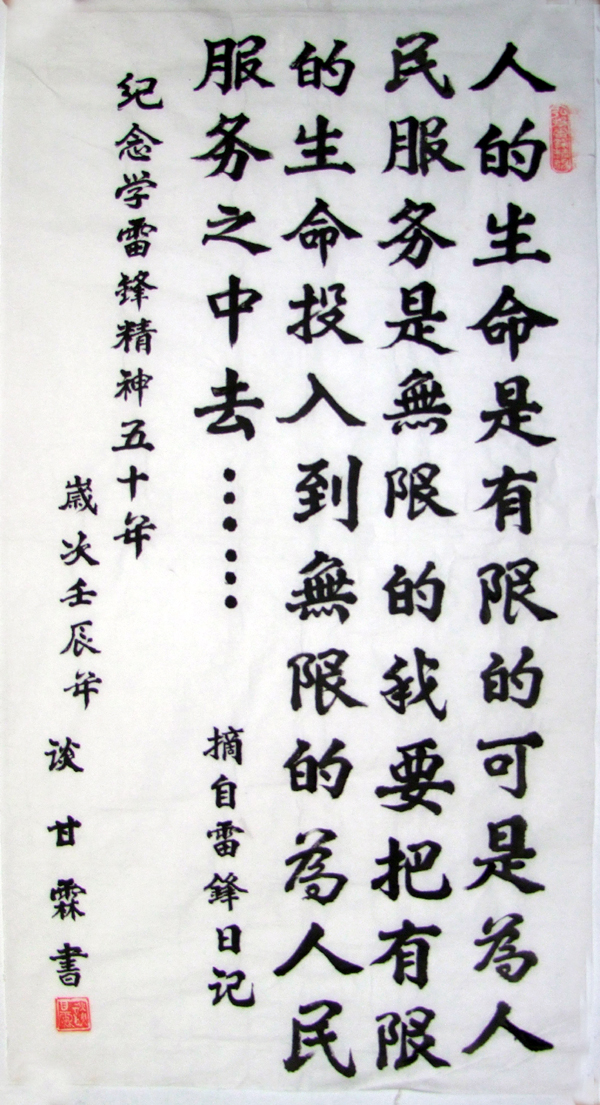 人的生命是有限的可是為人
民服务是無限的我要把有限
的生命投入到無限的為人民
服务之中去……
摘自雷鋒日记
纪念学雷鋒精神五十年
歲次壬辰年
谈甘霖書